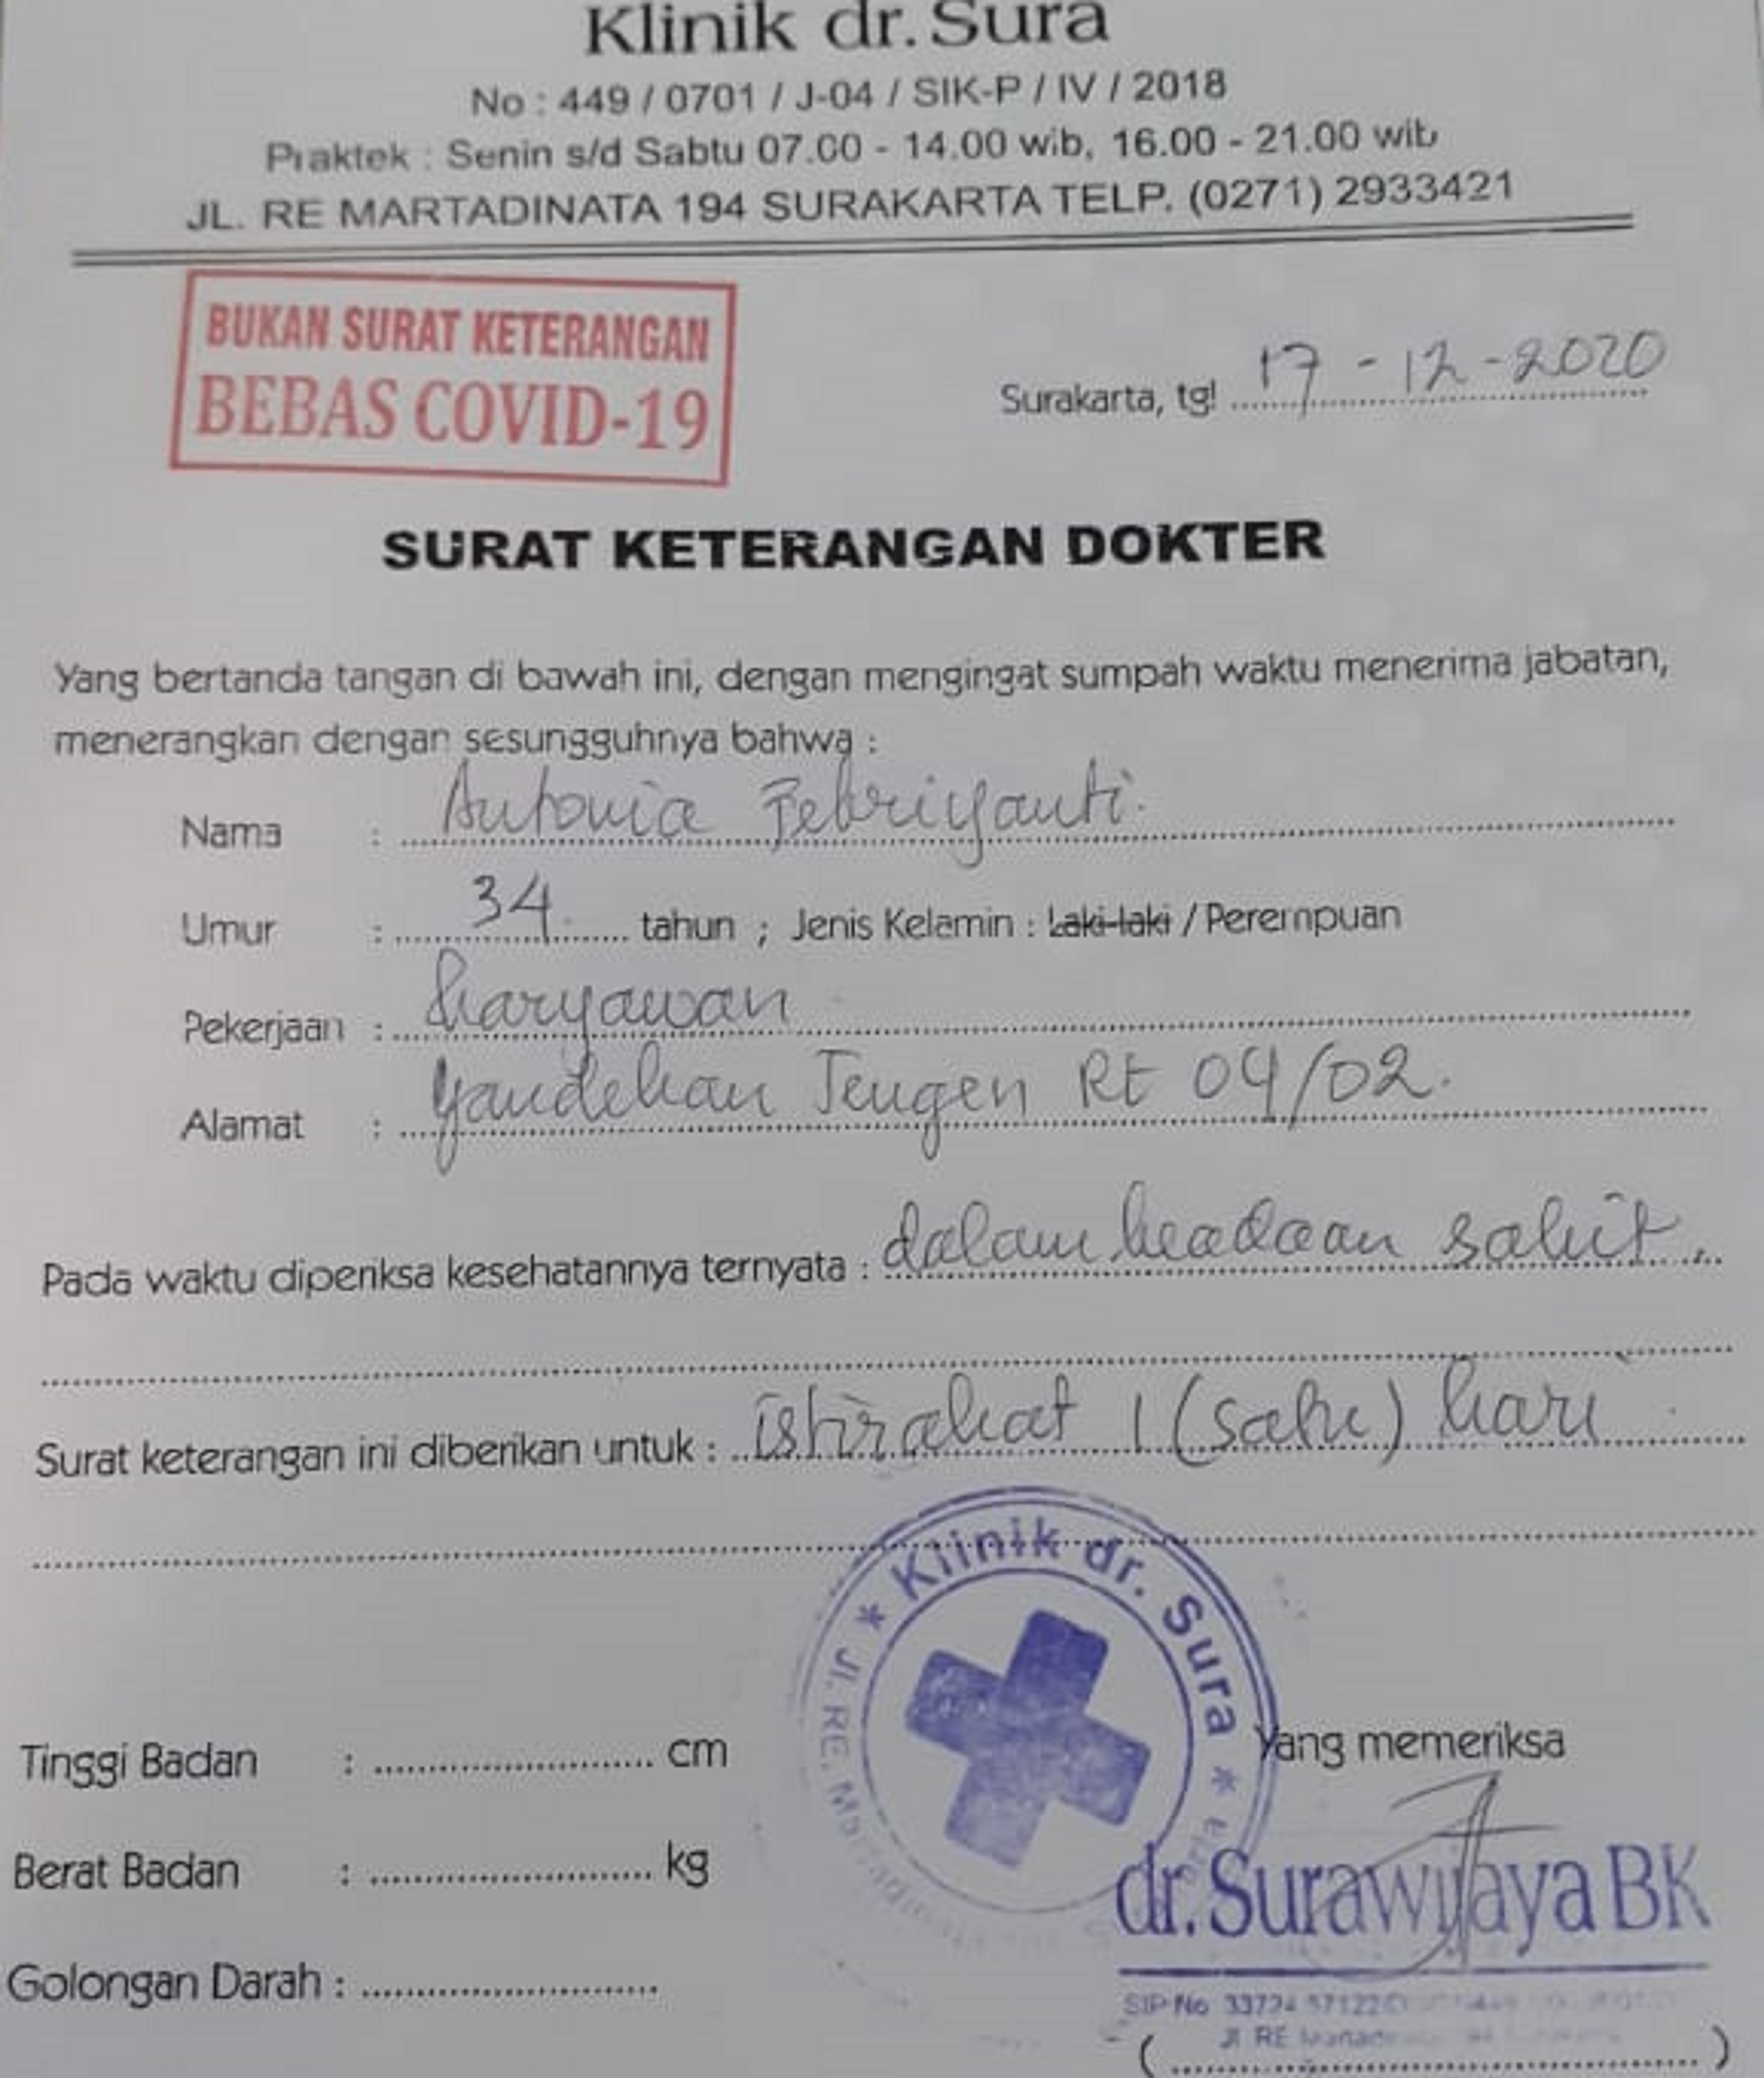 Klinik dr. Sura
No : 449 / 0701 / J-04 / SIK-P / IV / 2018
Praktek : Senin s/d Sabtu 07.00 - 14.00 wib, 16.00 - 21.00 wib
JL. RE MARTADINATA 194 SURAKARTA TELP. (0271) 2933421
BUKAN SURAT KETERANGAN
BEBAS COVID-19
Surakarta, tgl 17-12-2020
SURAT KETERANGAN DOKTER
Yang bertanda tangan di bawah ini, dengan mengingat sumpah waktu menerima jabatan,
menerangkan dengan sesungguhnya bahwa :
Nama : Antonia Febriyanti.
Umur : 34 tahun ; Jenis Kelamin : Laki-laki / Perempuan
Pekerjaan : Karyawan
Alamat : Tengen Rt 04/02.
Pada waktu diperiksa kesehatannya ternyata : dalam keadaan sakit.
Surat keterangan ini diberikan untuk : istirahat 1 (satu) hari
* Klinik dr. Sura *
Jl. RE.
Tinggi Badan : cm
Yang memeriksa
Berat Badan : kg
dr. Surawijaya BK
Golongan Darah :
SIP No
Jl RE
( )